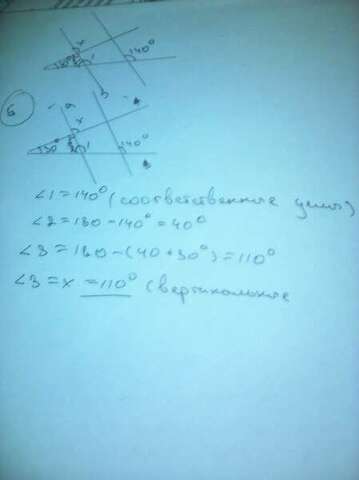 x 140°
30° 1
5
a
x
30° 1 140°
∠1=140° (соответственные углы)
∠2=180-140°=40°
∠3=180-(40+30°)=110°
∠3=x=110° (вертикальные